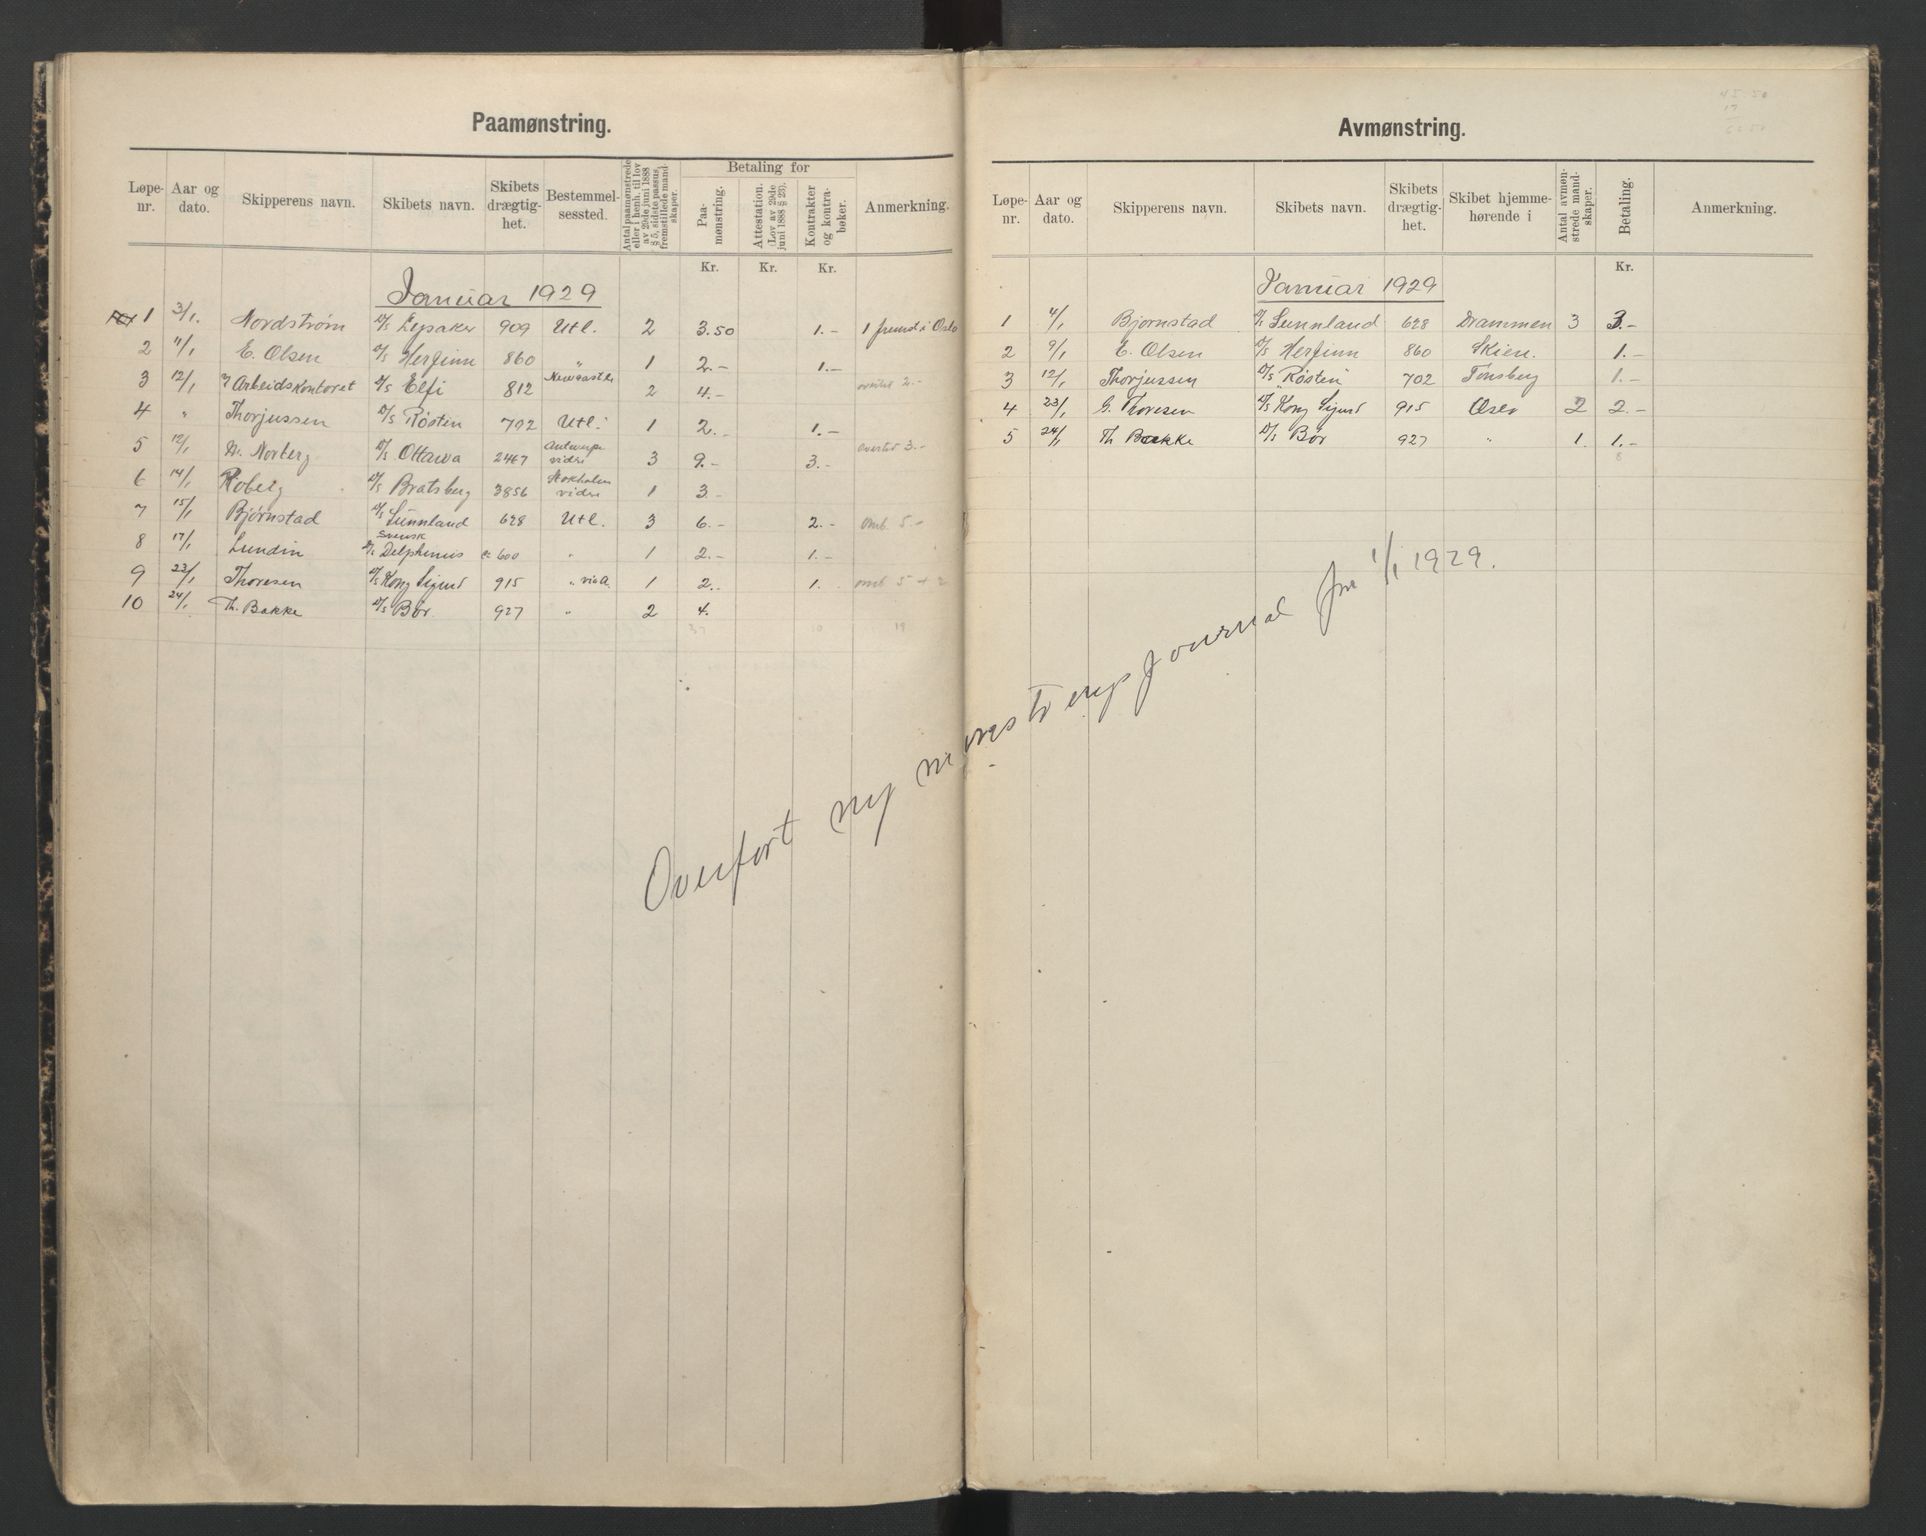 Paamønstring.
Løpe-nr. | Aar og dato. | Skipperens navn. | Skibets navn. | Skibets drægtig-het. | Bestemmel-sessted. | Antal paamønstrede eller i henh. til lov av 29de juni 1888 § 5, sidste passus, fremstillede mand-skaper. | Betaling for | Paa-mønstring. | Attestation. (Lov av 29de juni 1888 § 23). | Kontrakter og kontra-bøker. | Anmerkning.
Kr. | Kr. | Kr.
Januar 1929
1 | 3/1. | Nordstrøm | D/s Lysaker | 909 | Utl. | 2 | 3.50 | 1.- | 1 fremst i Oslo
2 | 11/1 | E. Olsen | D/s Herfinn | 860 | " | 1 | 2.- | 1.-
3 | 12/1 | Arbeidskontoret | D/s Elfi | 812 | Newcastle | 2 | 4.- | overtid 2.-
4 | " | Thorjussen | D/s Røsten | 702 | Utl. | 1 | 2.- | 1.-
5 | 12/1 | Norberg | D/s Ottawa | 2467 | Antwerpen videre | 3 | 9.- | 3.- | overtid 3.-
6 | 14/1 | Roberg | D/s Bratsberg | 3856 | Stokholm videre | 1 | 3.-
7 | 15/1 | Bjørnstad | D/s Sunnland | 628 | Utl. | 3 | 6.- | 2.- | omb. 5.-
8 | 17/1 | Lundin | svensk D/s Delphinus | ca 600 | " | 1 | 2.- | 1.-
9 | 23/1 | Thoresen | D/s Kong Sigurd | 915 | " | 1 | 2.. | 1. | omb 5 + 2
10 | 24/1 | Th. Bakke | D/s Bør. | 927 | " | 2 | 4.
37 | 10 | 19
Avmønstring.
45.50
17
62.50
Løpe-nr. | Aar og dato. | Skipperens navn. | Skibets navn. | Skibets drægtig-het. | Skibet hjemme-hørende i | Antal avmøn-strede mand-skaper. | Betaling. | Anmerkning.
Kr.
Januar 1929
1 | 4/1 | Bjørnstad | D/s Sunnland | 628 | Drammen | 3 | 3.-
2 | 9/1 | E. Olsen | D/s Herfinn | 860 | Skien. | 1.-
3 | 12/1 | Thorjussen | D/s "Røsten" | 702 | Tønsberg | 1.-
4 | 23/1 | G. Thoresen | D/s Kong Sigurd | 915 | Oslo | 2 | 2.-
5 | 24/1 | Th Bakke | D/s Bør | 927 | " | 1. | 1.-
8
Overført ny mønstringsjournal fra 1/1 1929.